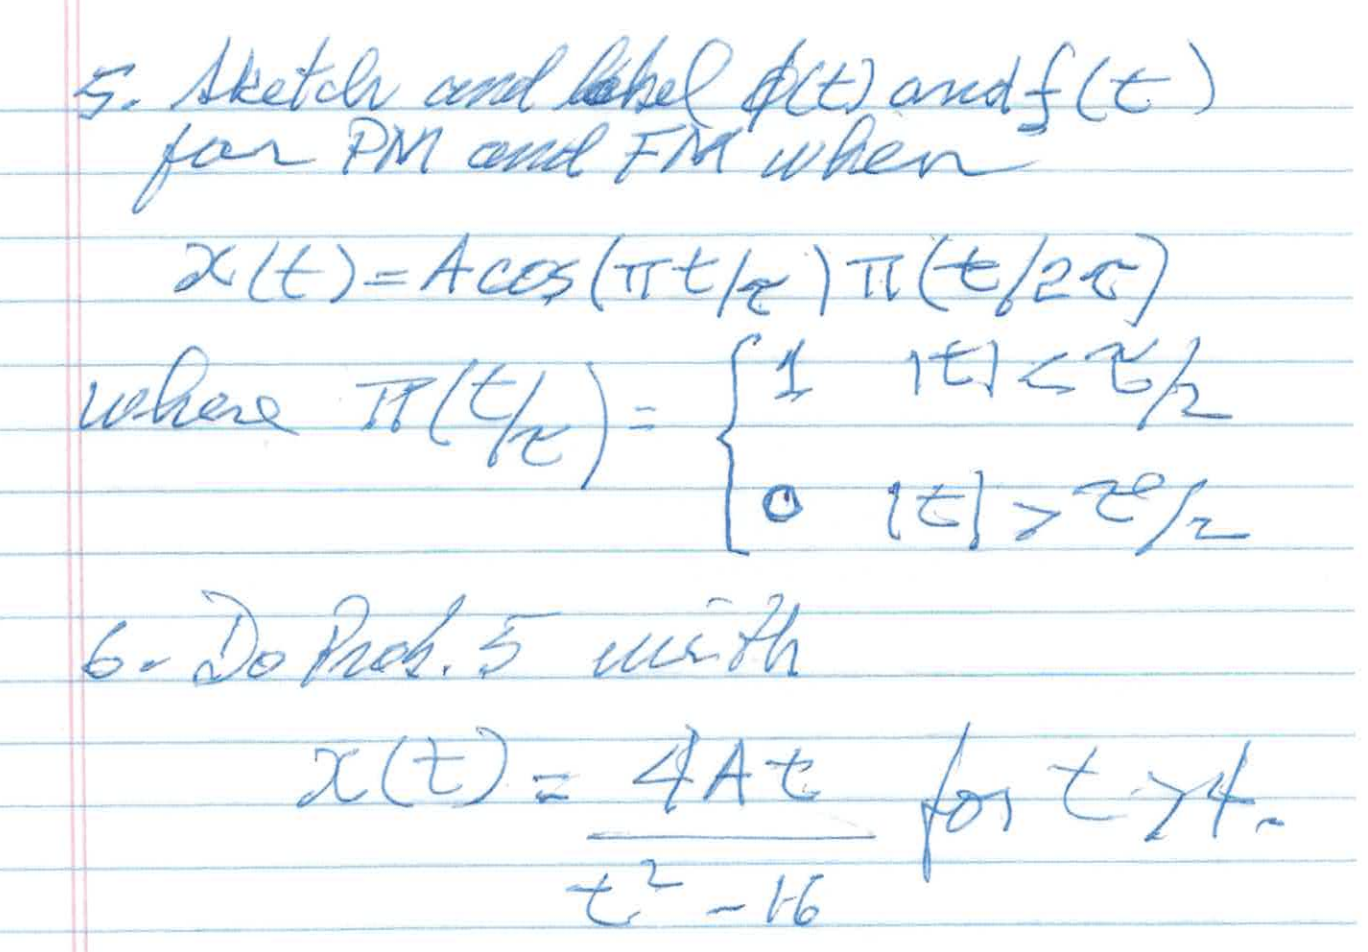 5. Sketch and label ϕ(t) and f(t)
for PM and FM when
x(t) = A cos(πt/τ) Π(t/2τ)
where Π(t/τ) = { 1 |t| < τ/2
0 |t| > τ/2
6. Do Prob. 5 with
x(t) = 4At for t > 4.
t² - 16